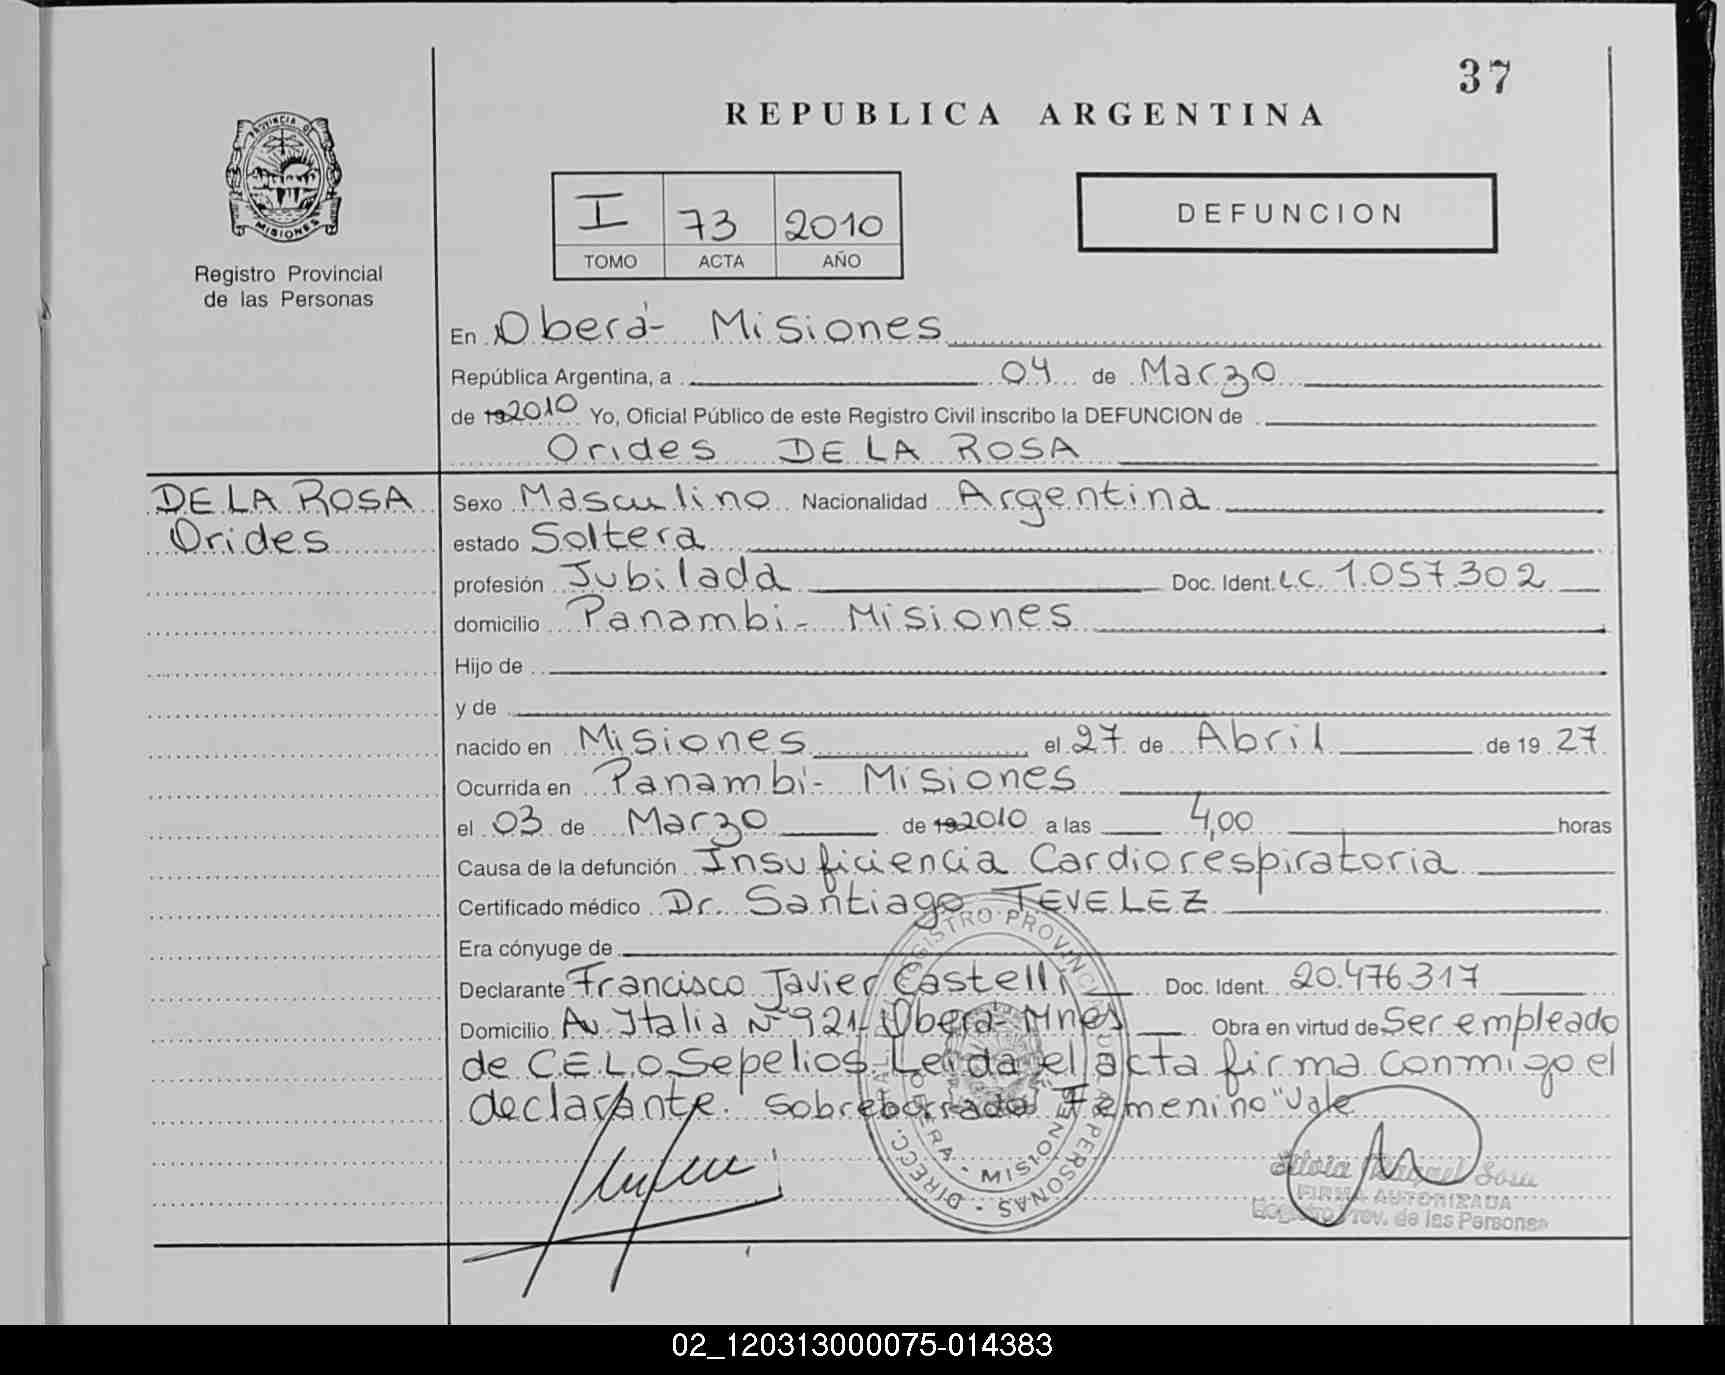 37
REPUBLICA ARGENTINA
PROVINCIA DE
MISIONES
Registro Provincial
de las Personas
I 73 2010
TOMO ACTA AÑO
DEFUNCION
En Oberá- Misiones
República Argentina, a 04 de Marzo
de 19 2010 Yo, Oficial Público de este Registro Civil inscribo la DEFUNCION de
Orides DE LA ROSA
DE LA ROSA
Orides
Sexo Masculino Nacionalidad Argentina
estado Soltera
profesión Jubilada Doc. Ident. L.C. 1.057.302
domicilio Panambi- Misiones
Hijo de
y de
nacido en Misiones el 27 de Abril de 19 27
Ocurrida en Panambi- Misiones
el 03 de Marzo de 19 2010 a las 4,00 horas
Causa de la defunción Insuficiencia Cardiorespiratoria
Certificado médico Dr. Santiago TEVELEZ
Era cónyuge de
Declarante Francisco Javier Castelli Doc. Ident. 20.476.317
Domicilio Av. Italia Nº 921- Oberá- Mnes Obra en virtud de Ser empleado
de C.E.L.O Sepelios. Leida el acta firma conmigo el
declarante. Sobreborrado "Femenino" Vale
FIRMA AUTORIZADA
Registro Prov. de las Personas
02_120313000075-014383